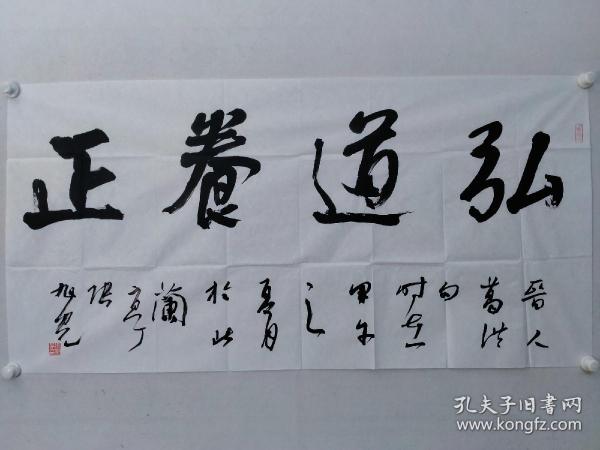 弘道養正
晋人
葛洪
句
时在
甲午
之
夏月
於北
蘭
亭
张
旭光
孔夫子旧書网
www.kongfz.com